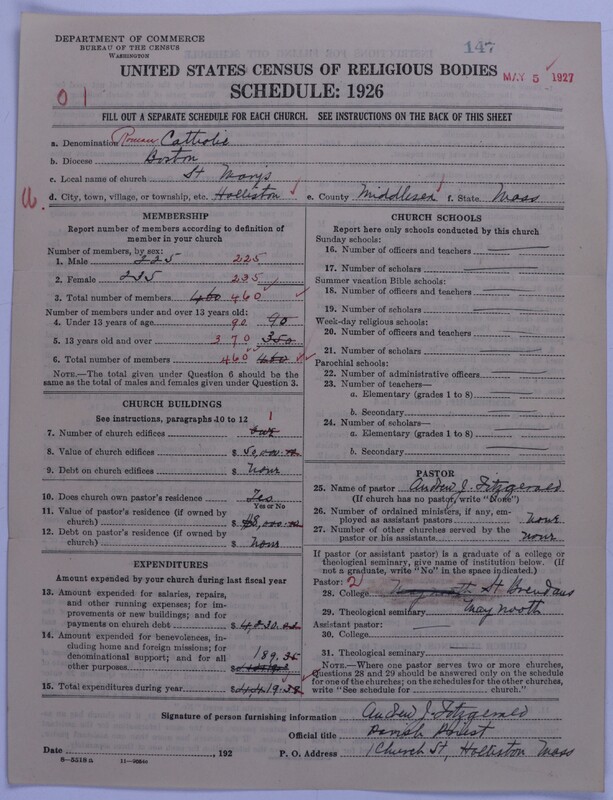 DEPARTMENT OF COMMERCE
BUREAU OF THE CENSUS
WASHINGTON
147
UNITED STATES CENSUS OF RELIGIOUS BODIES
MAY 5 1927
SCHEDULE: 1926
01
FILL OUT A SEPARATE SCHEDULE FOR EACH CHURCH. SEE INSTRUCTIONS ON THE BACK OF THIS SHEET
a. Denomination Roman Catholic
b. Diocese Boston
c. Local name of church St Mary's
d. City, town, village, or township, etc. Holliston e. County Middlesex f. State Mass
MEMBERSHIP
Report number of members according to definition of
member in your church
Number of members, by sex:
1. Male 225 225
2. Female 235 235
3. Total number of members 460
Number of members under and over 13 years old:
4. Under 13 years of age 90 90
5. 13 years old and over 370 350
6. Total number of members 460
NOTE.—The total given under Question 6 should be
the same as the total of males and females given under Question 3.
CHURCH BUILDINGS
See instructions, paragraphs 10 to 12
7. Number of church edifices 1 one
8. Value of church edifices $
9. Debt on church edifices $ none
10. Does church own pastor's residence Yes
Yes or No
11. Value of pastor's residence (if owned by
church) $ 8,000.00
12. Debt on pastor's residence (if owned by
church) $ none
EXPENDITURES
Amount expended by your church during last fiscal year
13. Amount expended for salaries, repairs,
and other running expenses; for im-
provements or new buildings; and for
payments on church debt $
14. Amount expended for benevolences, in-
cluding home and foreign missions; for
denominational support; and for all
other purposes $ 189.35
15. Total expenditures during year $
CHURCH SCHOOLS
Report here only schools conducted by this church
Sunday schools:
16. Number of officers and teachers
17. Number of scholars
Summer vacation Bible schools:
18. Number of officers and teachers
19. Number of scholars
Week-day religious schools:
20. Number of officers and teachers
21. Number of scholars
Parochial schools:
22. Number of administrative officers
23. Number of teachers—
a. Elementary (grades 1 to 8)
b. Secondary
24. Number of scholars—
a. Elementary (grades 1 to 8)
b. Secondary
PASTOR
25. Name of pastor Andrew J. Fitzgerald
(If church has no pastor, write "None")
26. Number of ordained ministers, if any, em-
ployed as assistant pastors none
27. Number of other churches served by the
pastor or his assistants none
If pastor (or assistant pastor) is a graduate of a college or
theological seminary, give name of institution below. (If
not a graduate, write "No" in the space indicated.)
Pastor: 2
28. College St Brendans
29. Theological seminary Maynooth
Assistant pastor:
30. College
31. Theological seminary
NOTE.—Where one pastor serves two or more churches,
Questions 28 and 29 should be answered only on the schedule
for one of the churches; on the schedules for the other churches,
write "See schedule for church."
Signature of person furnishing information Andrew J. Fitzgerald
Official title Parish Priest
Date , 192 P. O. Address 1 Church St, Holliston Mass
8-5518a